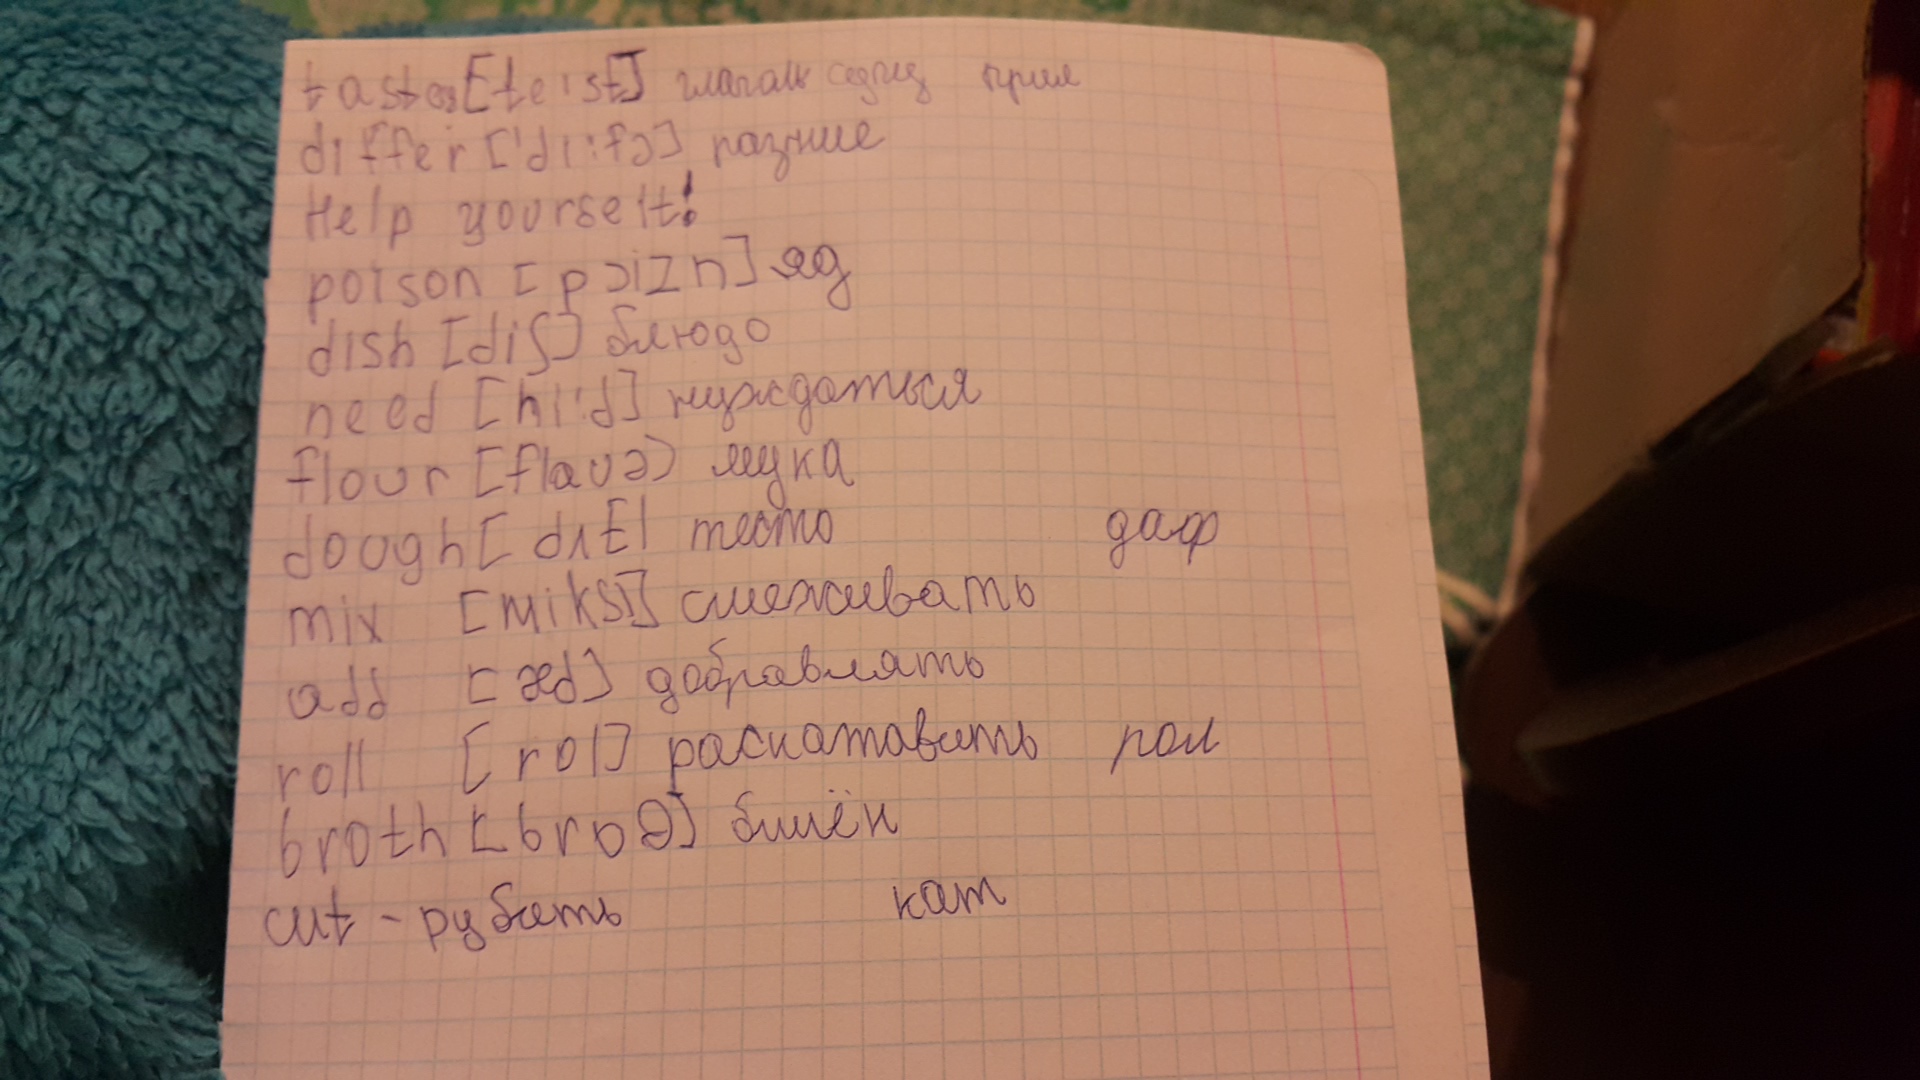 tastes [teist] глаголь сущ прил
differ ['di:fə] разные
Help yourself!
poison [pɔizn] яд
dish [diʃ] блюдо
need [ni:d] нуждаться
flour [flauə) мука
dough [dʌf] тесто даф
mix [miks] смеживать
add [æd] добравлять
roll [rol] раскатавать рол
broth [brɒθ] бшён
cut - рубать кат